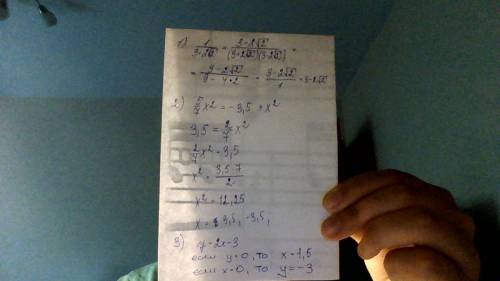 1) 1/(3+2√2) = (3-2√2)/((3+2√2)(3-2√2)) =
= (3-2√2)/(9-4·2) = (3-2√2)/1 = 3-2√2
2) 5/7 x² = -3,5 + x²
3,5 = 2/7 x²
2/7 x² = 3,5
x² = (3,5·7)/2
x² = 12,25
x = 3,5, -3,5,
3) y=2x-3
если y=0, то x=1,5
если x=0, то y=-3